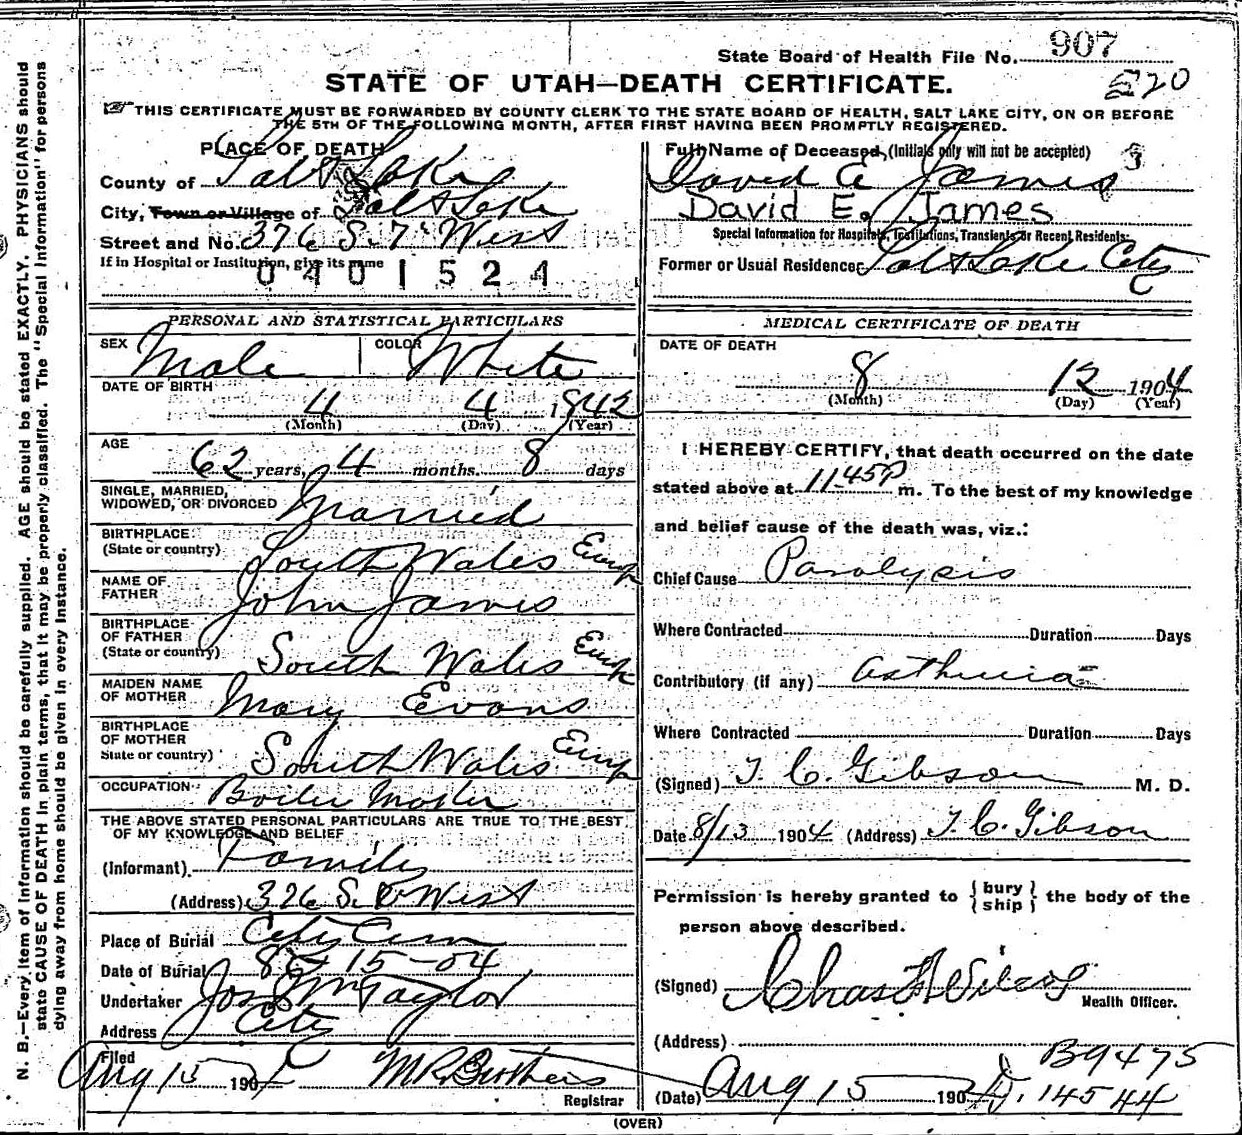 State Board of Health File No. 907
STATE OF UTAH—DEATH CERTIFICATE.
E20
THIS CERTIFICATE MUST BE FORWARDED BY COUNTY CLERK TO THE STATE BOARD OF HEALTH, SALT LAKE CITY, ON OR BEFORE
THE 5TH OF THE FOLLOWING MONTH, AFTER FIRST HAVING BEEN PROMPTLY REGISTERED.
PLACE OF DEATH
County of Salt Lake
City, Town or Village of Salt Lake
Street and No. 376 S. 7 West
If in Hospital or Institution, give its name
0401524
Full Name of Deceased, (Initials only will not be accepted) 3
David E James
David E. James
Special Information for Hospitals, Institutions, Transients or Recent Residents:
Former or Usual Residence Salt Lake City
PERSONAL AND STATISTICAL PARTICULARS
SEX Male COLOR White
DATE OF BIRTH
4 4 1842
(Month) (Day) (Year)
AGE
62 years, 4 months. 8 days
SINGLE, MARRIED,
WIDOWED, OR DIVORCED Married
BIRTHPLACE
(State or country) South Wales Europ
NAME OF
FATHER John James
BIRTHPLACE
OF FATHER
(State or country) South Wales Europ
MAIDEN NAME
OF MOTHER Mary Evans
BIRTHPLACE
OF MOTHER
State or country) South Wales Europ
OCCUPATION Boiler Maker
THE ABOVE STATED PERSONAL PARTICULARS ARE TRUE TO THE BEST
OF MY KNOWLEDGE AND BELIEF
(Informant) Family
(Address) 376 S. West
Place of Burial City Cem
Date of Burial 8 15-04
Undertaker Jos Wm Taylor
Address City
Filed
Aug 15 1904
Registrar
MEDICAL CERTIFICATE OF DEATH
DATE OF DEATH
8 12 1904
(Month) (Day) (Year)
I HEREBY CERTIFY, that death occurred on the date
stated above at 11 45P m. To the best of my knowledge
and belief cause of the death was, viz.:
Chief Cause Paralysis
Where Contracted Duration Days
Contributory (if any) asthma
Where Contracted Duration Days
(Signed) T. C. Gibson M. D.
Date 8/13 1904 (Address) T. C. Gibson
Permission is hereby granted to { bury ship } the body of the
person above described.
(Signed) Chas F Wilcox
Health Officer.
(Address)
B9475
(Date) Aug 15 190 D. 14544
(OVER)
N. B.—Every item of information should be carefully supplied. AGE should be stated EXACTLY. PHYSICIANS should
state CAUSE OF DEATH in plain terms, that it may be properly classified. The "Special Information" for persons
dying away from home should be given in every instance.